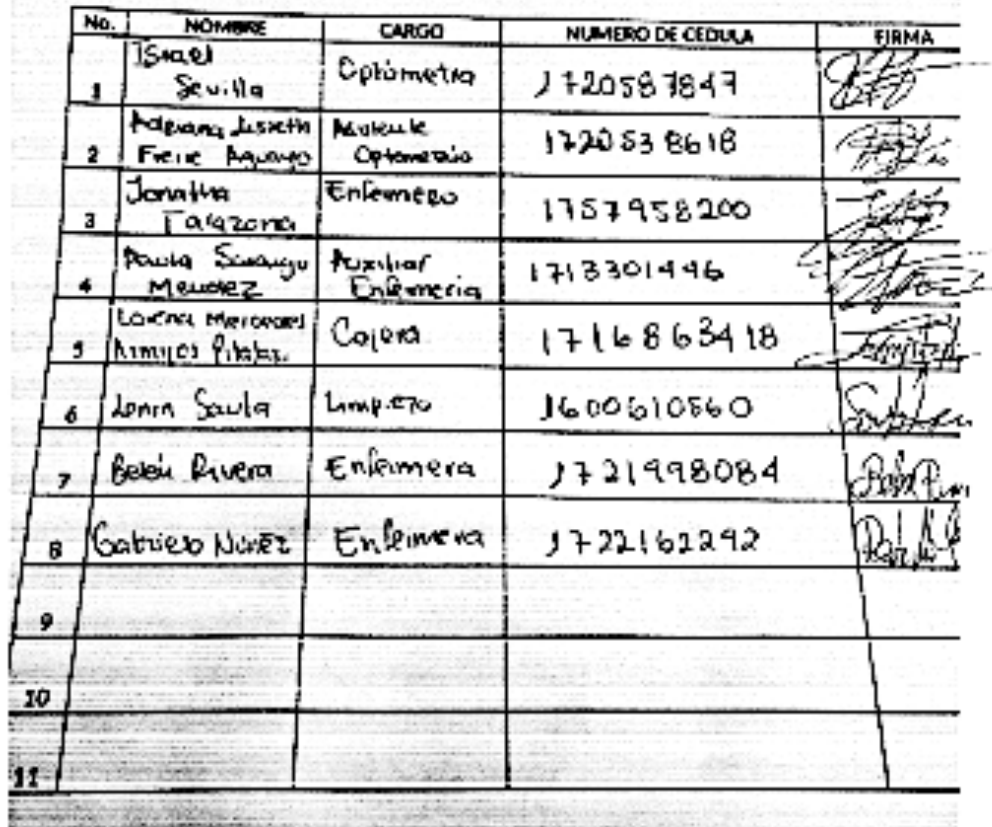 No. NOMBRE CARGO NUMERO DE CEDULA FIRMA
1 Israel Sevilla Optometra 1720587847
2 Adriana Lisseth Freire Optometria 1720538618
3 Jonatha Tarazona Enfermero 1757958200
4 Paula Mendez Auxiliar Enfermeria 1713301446
5 Lorena Mercedes Armijos Cajera 1716863418
6 Lenin Saula Limpieza 1600610560
7 Belén Rivera Enfermera 1721998084
8 Gabriela Núñez Enfermera 1722162292
9
10
11